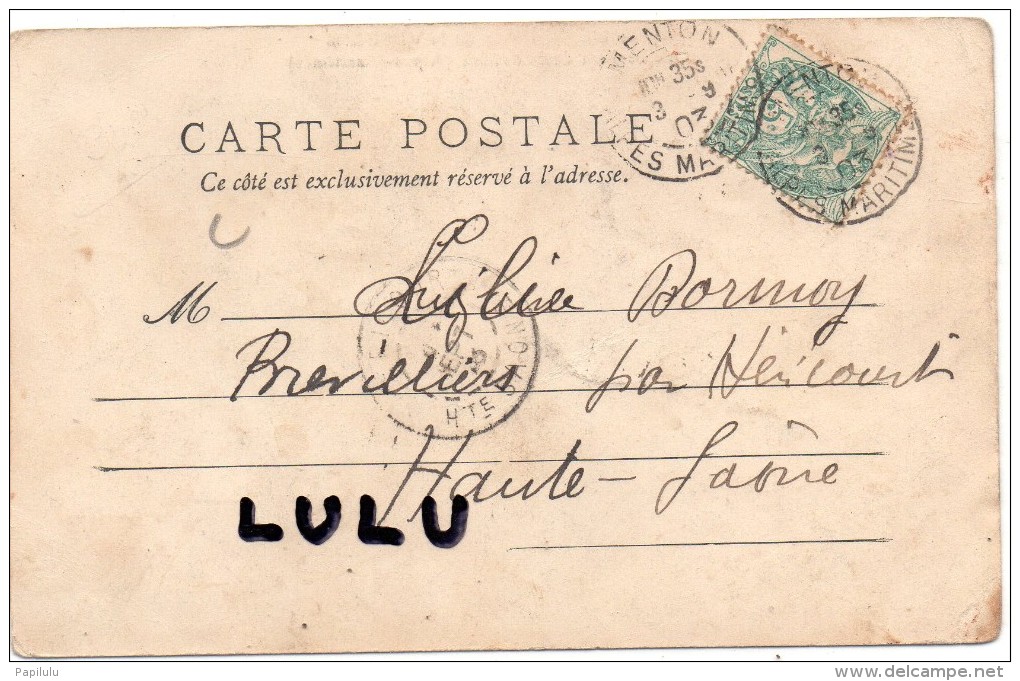 MENTON
35S
3 9
03
ALPES MARITIMES
CARTE POSTALE
Ce côté est exclusivement réservé à l'adresse.
M Bormoy
Brevilliers par Héricourt
HTE SAONE
Haute-Saône
LULU
Papilulu
www.delcampe.net